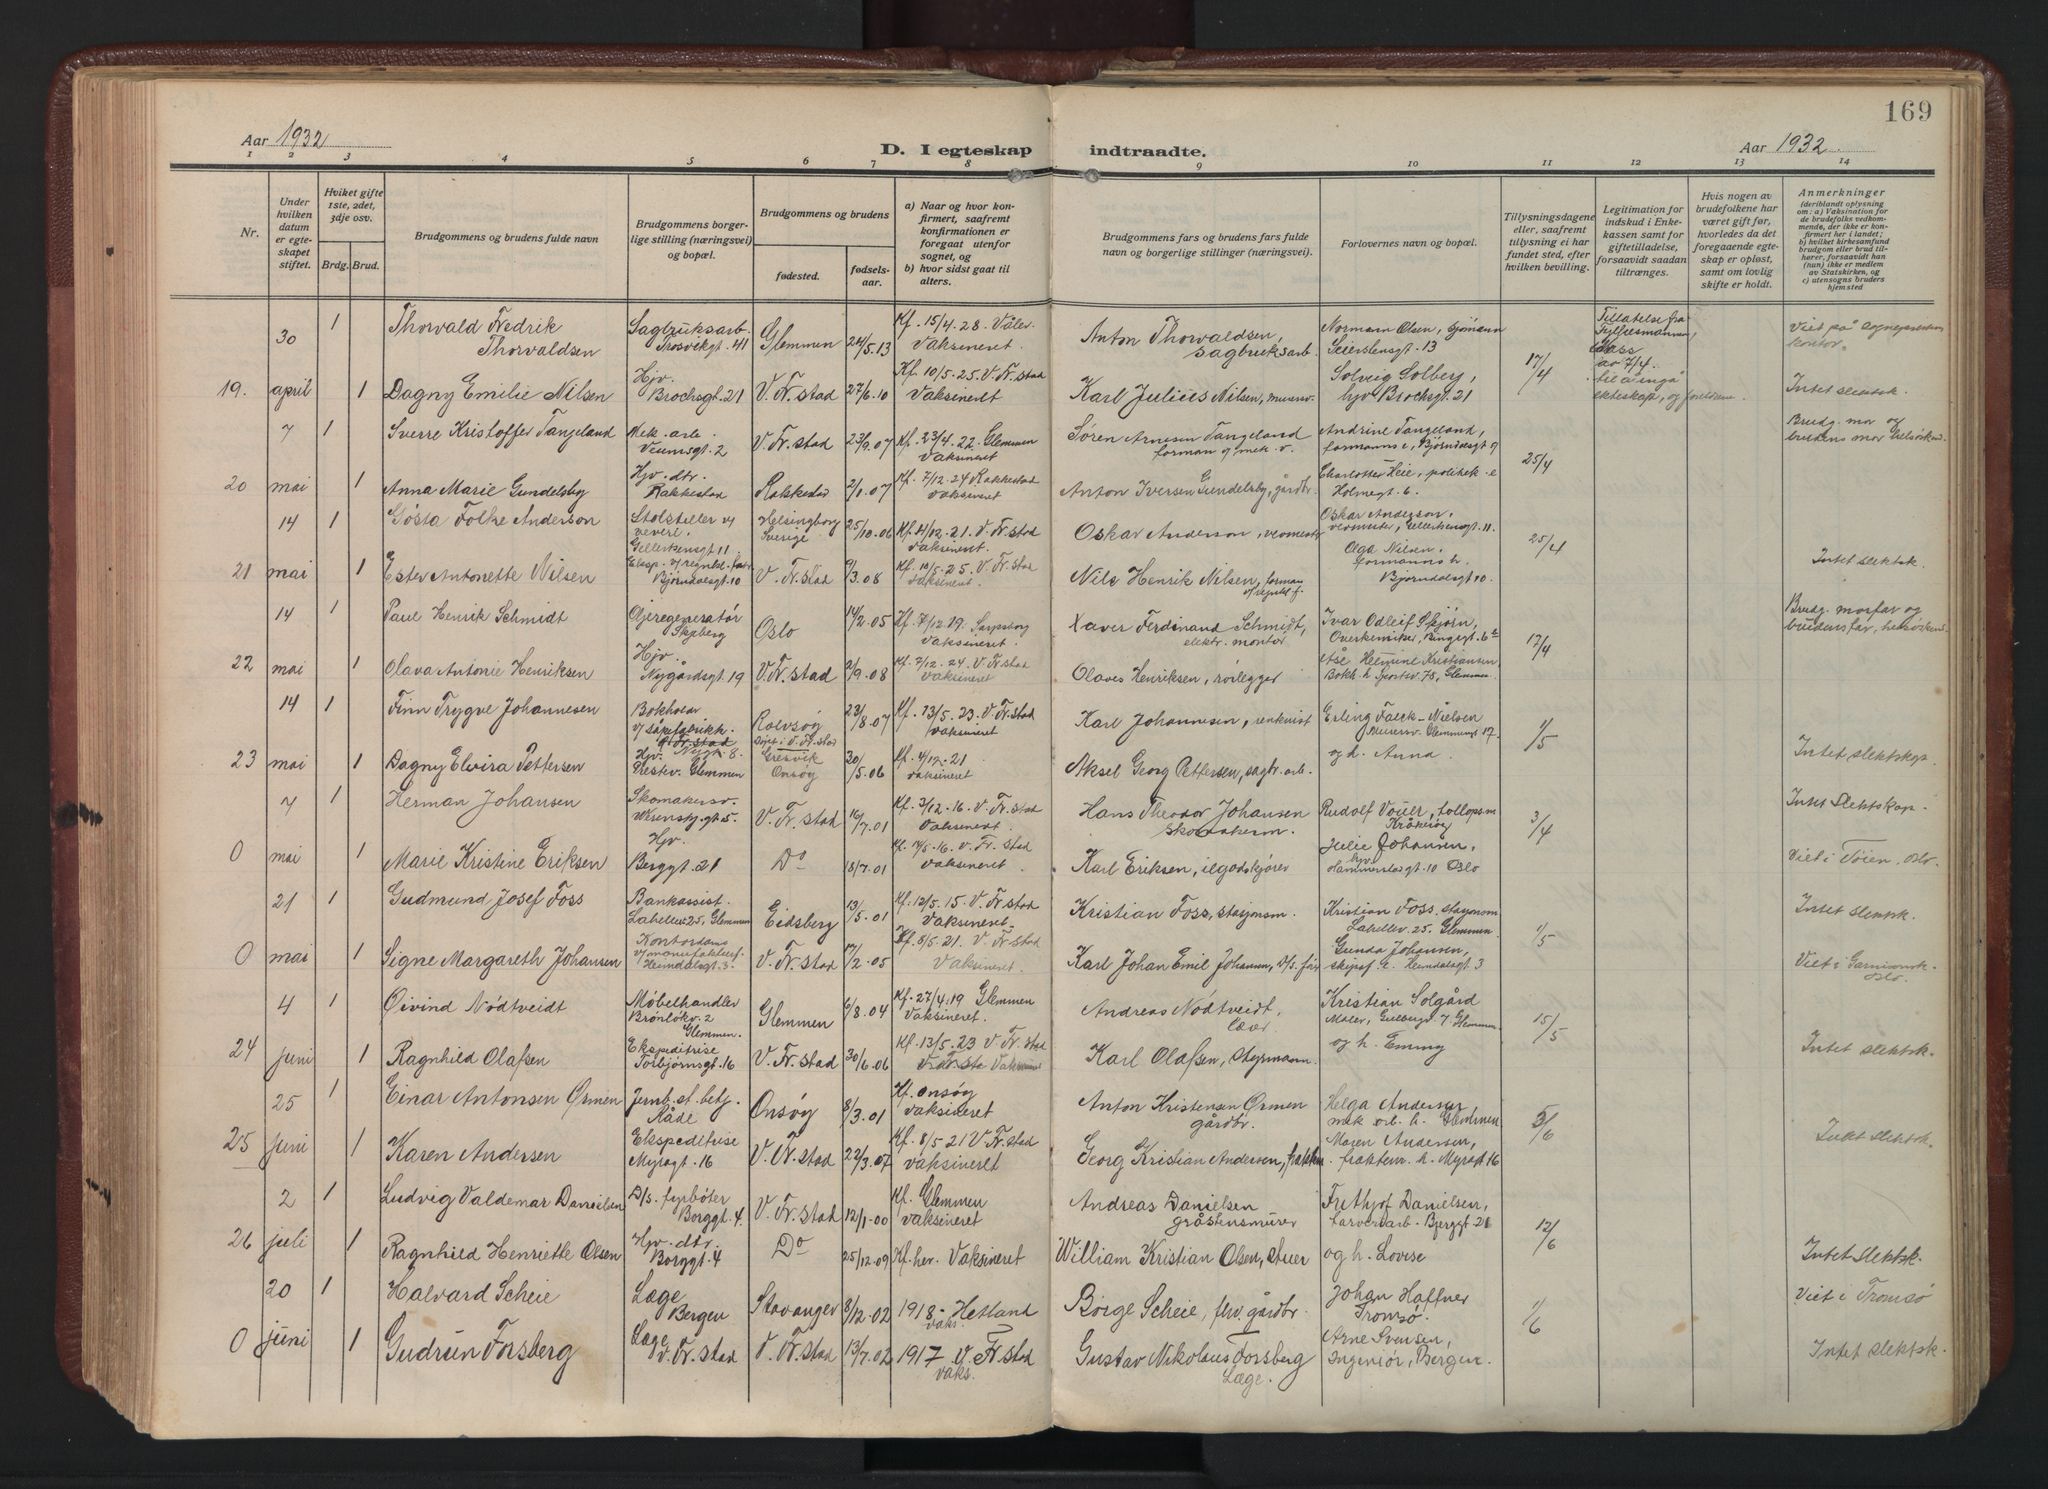 169
Aar 1932
D. I egteskap indtraadte.
Aar 1932
1 2 3 4 5 6 7 8 9 10 11 12 13 14
Nr.
Under hvilken datum er egteskapet stiftet.
Hviket gifte 1ste, 2det, 3dje osv.
Brdg. Brud.
Brudgommens og brudens fulde navn
Brudgommens borgerlige stilling (næringsvei) og bopæl.
Brudgommens og brudens
fødested.
fødselsaar.
a) Naar og hvor konfirmert, saafremt konfirmationen er foregaat utenfor sognet, og
b) hvor sidst gaat til alters.
Brudgommens fars og brudens fars fulde navn og borgerlige stillinger (næringsvei).
Forlovernes navn og bopæl.
Tillysningsdagene eller, saafremt tillysning ei har fundet sted, efter hvilken bevilling.
Legitimation for indskud i Enkekassen samt for giftetilladelse, forsaavidt saadan tiltrænges.
Hvis nogen av brudefolkene har været gift før, hvorledes da det foregaaende egteskap er opløst, samt om lovlig skifte er holdt.
Anmerkninger (deriblandt oplysning om: a) Vaksination for de brudefolks vedkommende, der ikke er konfirmert her i landet; b) hvilket kirkesamfund brudgom eller brud tilhører, forsaavidt han (nun) ikke er medlem av Statskirken, og c) utensogns bruders hjemsted
30 1 Thorvald Fredrik Thorvaldsen Sagbruksarb. Trosvikgt. 41 Glemmen 24/5.13 Kf. 15/4.28. Våler. Vaksineret Anton Thorvaldsen, sagbruksarb. Normann Olsen, sjømann Seierstensgt. 13 17/4 Tillatelse fra av 7/4. til å ingå ekteskap, og Viet på kontor.
19. april 1 Dagny Emilie Nilsen Hjv. Brochsgt. 21 V. Fr.stad 27/6.10 Kf. 10/5.25. V. Fr.stad Vaksineret Karl Julius Nilsen, murersv. Solveig Solberg, hjv Brochsgt. 21 Intet slektsk.
7 1 Sverre Kristoffer Tangeland Mek. arb. Veumsgt. 2 V. Fr.stad 23/9.07 Kf. 23/4.22. Glemmen Vaksineret Søren Arnesen Tangeland forman v/ mek. v. Andrine Tangeland, formanns e, Bjørndalsgt 9 25/4 Brudg. mor og brudens mor helsøsk.
20 mai 1 Anna Marie Gundelsby Hjv. dtr. Rakkestad Rakkestad 2/1.07 Kf. 7/12.24 Rakkestad Vaksineret Anton Iversen Gundelsby, gårdbr. Charlotte Heie, politik. e Holmegt. 6.
14 1 Gösta Folke Anderson Stolstiller v/ veveri. Gellertsensgt 11 Helsingborg Sverige 25/10.06 Kf. 4/12.21. V. Fr.stad Vaksineret. Oskar Anderson, vevmestr Oskar Anderson, vevmester, Gellertsensgt. 11. 25/4
21 mai 1 Ester Antonette Nilsen Bjørndalsgt. 10 V. Fr.stad 9/3.08 Kf. 10/5.25. V. Fr.stad Vaksineret. Nils Henrik Nilsen, forman Olga Nilsen, formanns h. Bjørndalsgt 10. Intet slektsk.
14 1 Paul Henrik Schmidt Oljeregeneratør Skjeberg Oslo 14/2.05 Kf. 7/12 19. Sarpsborg Vaksineret Xaver Ferdinand Schmidt, elektr. montør Ivar Odleif Skjørn, Overkemiker, Bingsgt. 6 17/4 Brudg. morfar og brudens far, helsøsken
22 mai 1 Olava Antonie Henriksen Hjv. Nygårdsgt. 19 V. Fr.stad 2/9.08 Kf. 7/12.24. V. Fr.stad Vaksineret. Olaves Henriksen, rørlegger Åse Helmine Kristiansen Bokh. h Sportsv. 78, Glemmen
14 1 Finn Trygve Johannesen Bokholder v/ såpefabrikk. Rolvsøy 23/8.07 Kf. 13/5.23. V. Fr.stad Vaksineret. Karl Johannesen, renkvist Erling Falck-Nielsen Murersv. Glemmengt 17. 1/5
23 mai 1 Dagny Elvira Pettersen Hjv. Prestev. Glemmen Gresvik Onsøy 30/5.06 Kf. 4/12-21 Vaksineret Aksel Georg Pettersen, sagbr. arb. og h. Anna. Intet slektskp.
7 1 Herman Johansen Skomakersv. Wesenskj.gt 5. V. Fr.stad 16/7.01 Kf. 3/12.16. V. Fr.stad Vaksineret. Hans Theodor Johansen Skomakerm. Rudolf Kråkerøy 3/4 Intet slektskap.
0 mai 1 Marie Kristine Eriksen Hjv. Berggt. 21 Do 18/7.01 V. Fr. stad Vaksineret Karl Eriksen, ilgodskjører Julie Johansen, hjv Hammerstadsgt. 10 Oslo Viet i Tøien, Oslo
21 1 Gudmund Josef Foss Bankassist. Labellus 25, Glemmen Eidsberg 13/5.01 Kf. 12/5.15. V. Fr.stad Vaksineret. Kristian Foss, stasjonsm. Kristian Foss, stasjonsm Labellv. 25. Glemmen. 1/5 Intet slektsk.
0 mai 1 Signe Margareth Johansen Kontordame v/manufakturf. Heimdalsgt 3. V. Fr.stad 17/2.05 Kf. 8/5.21. V. Fr.stad Vaksineret. Karl Johan Emil Johansen, D/s. Gunda Johansen, skipsf. e. Heimdalsgt 3 Viet i Garnisonsk. Oslo.
4 1 Øivind Nødtveidt Møbelhandler Brønløkv. 2 Glemmen. Glemmen 6/8.04 Kf. 27/4.19 Glemmen Vaksineret. Andreas Nødtveidt, Kristian Solgård Maler, Gulbergt. 7 Glemmen 15/5
24 juni 1 Ragnhild Olafsen Ekspeditrise Torbjørnsgt. 16 V. Fr.stad 30/6.06 Kf. 13/5.23 V. Fr.stad Vaksineret Karl Olafsen, styrmann. og h. Emmy Intet slektsk.
25 1 Einar Antonsen Ørmen Jernb. st. betj. Råde Onsøy 8/3.01 Kf. Onsøy Vaksineret Anton Kristensen Ørmen gårdbr. Helga Andersen mek arb. h. Glemmen 5/6
25 juni 1 Karen Andersen Ekspeditrise Myragt. 16 V. Fr.stad 22/3.07 Kf. 8/5.21 V. Fr.stad Vaksineret Georg Kristian Andersen, Maren Andersen, fraktem. h. Myragt 16 Intet slektsk.
2 1 Ludvig Valdemar Danielsen D/s. fyrbøter Borggt. 4. V. Fr.stad 12/1.00 Kf. Glemmen Vaksineret Andreas Danielsen gråstensmurer Frithjof Danielsen, farveriarb. Bjerggt 21 12/6
26 juli 1 Ragnhild Henriette Olsen Hjv. dtr. Borggt. 4 Do 25/12.09 Kf. her. Vaksineret William Kristian Olsen, stuer og h. Lovise Intet slektsk.
20 1 Halvard Scheie Læge Bergen Stavanger 8/12.02 1918 - Hetland vaks. Børge Scheie, fhv. gårdbr. Johan Haffner Tromsø. 1/6 Viet i Tromsø
0 juni 1 Gudrun Forsberg Læge V. Fr.stad V. Fr.stad 13/7.02 1917 V. Fr.stad vaks. Gustav Nikolaus Forsberg Læge. Arne Svensen, Ingeniør, Bergen. Intet slektsk.